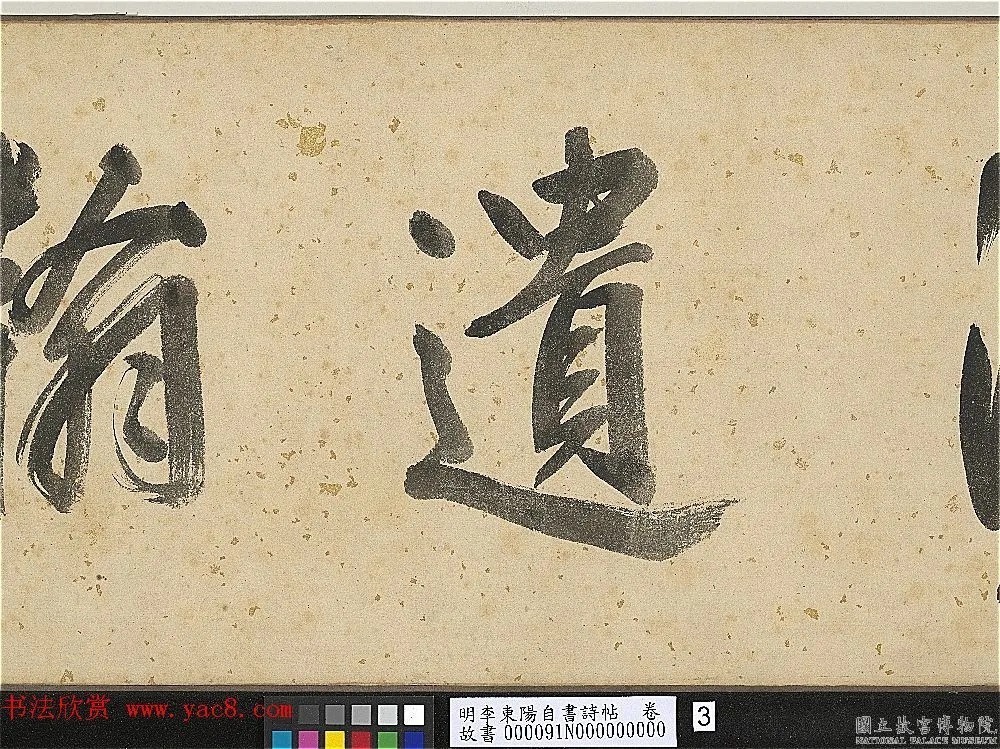 遺
翰
书法欣赏 www.yac8.com
明李東陽自書詩帖 卷
故書 000091N000000000
3
國立故宮博物院
NATIONAL PALACE MUSEUM